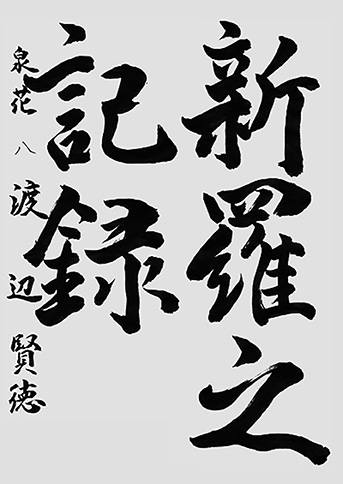 新羅之
記録
泉花 八 渡辺賢徳